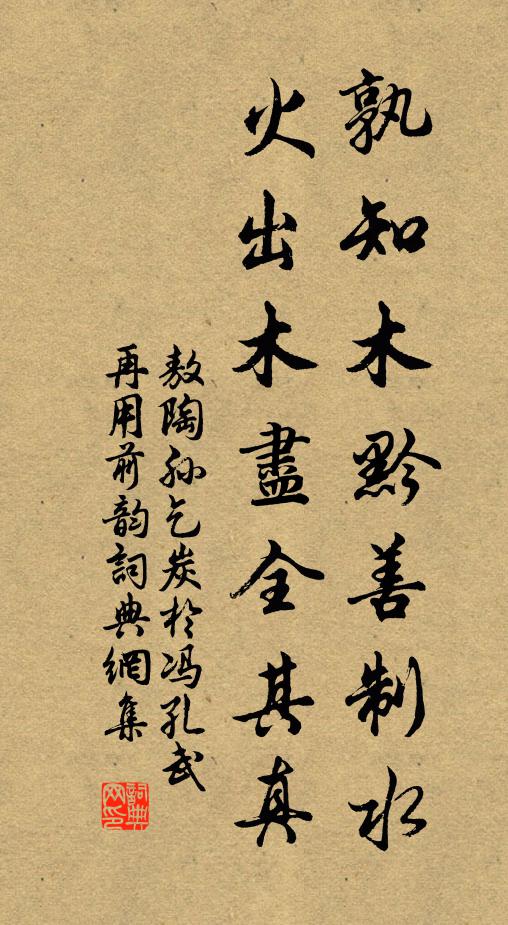 孰知木黔善制水
火出木盡全其真
敖陶孙乞炭於冯孔武
再用前韵詞典網集
詞典
网印